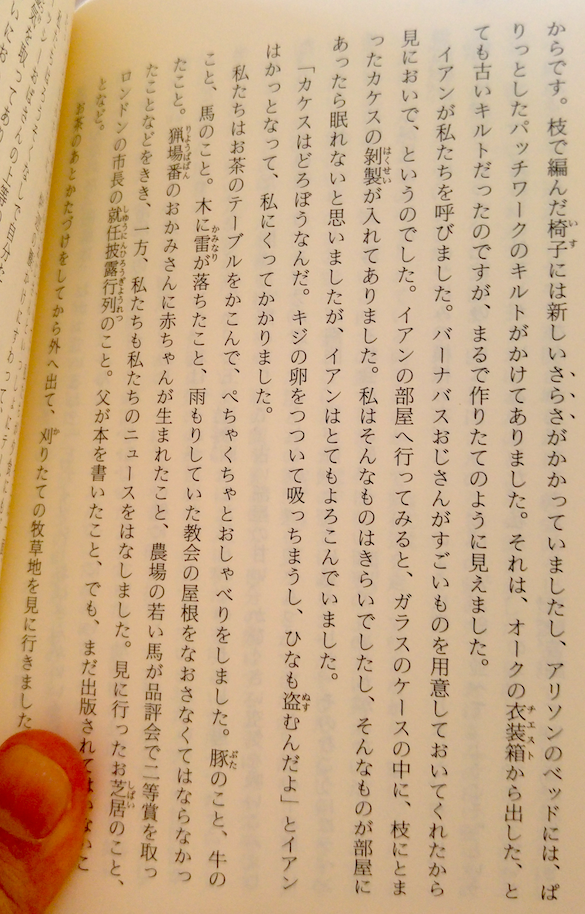 からです。枝で編んだ椅子には新しいさらさがかかっていましたし、アリソンのベッドには、ぱ
りっとしたパッチワークのキルトがかけてありました。それは、オークの衣装箱から出した、と
ても古いキルトだったのですが、まるで作りたてのように見えました。
イアンが私たちを呼びました。バーナバスおじさんがすごいものを用意しておいてくれたから
見においで、というのでした。イアンの部屋へ行ってみると、ガラスのケースの中に、枝にとま
ったカケスの剝製が入れてありました。私はそんなものはきらいでしたし、そんなものが部屋に
あったら眠れないと思いましたが、イアンはとてもよろこんでいました。
「カケスはどろぼうなんだ。キジの卵をつついて吸っちまうし、ひなも盗むんだよ」とイアン
はかっとなって、私にくってかかりました。
私たちはお茶のテーブルをかこんで、ぺちゃくちゃとおしゃべりをしました。豚のこと、牛の
こと、馬のこと。木に雷が落ちたこと、雨もりしていた教会の屋根をなおさなくてはならなかっ
たこと。猟場番のおかみさんに赤ちゃんが生まれたこと、農場の若い馬が品評会で二等賞を取っ
たことなどをきき、一方、私たちも私たちのニュースをはなしました。見に行ったお芝居のこと、
ロンドンの市長の就任披露行列のこと。父が本を書いたこと、でも、まだ出版されてはいないこ
となど。
お茶のあとかたづけをしてから外へ出て、刈りたての牧草地を見に行きました